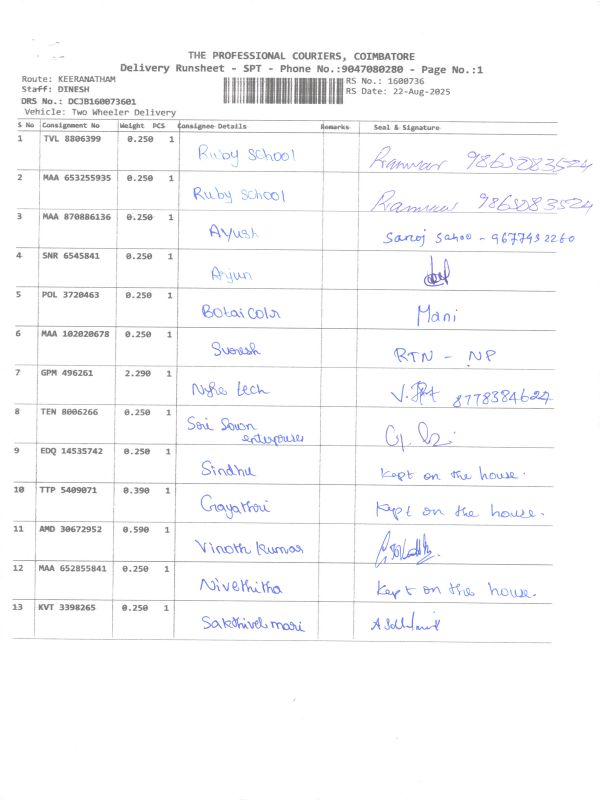 THE PROFESSIONAL COURIERS, COIMBATORE
Delivery Runsheet - SPT - Phone No.:9047080280 - Page No.:1
Route: KEERANATHAM RS No.: 1600736
Staff: DINESH RS Date: 22-Aug-2025
DRS No.: DCJB160073601
Vehicle: Two Wheeler Delivery
S No Consignment No Weight PCS Consignee Details Remarks Seal & Signature
1 TVL 8806399 0.250 1 Ruby School 9865083524
2 MAA 653255935 0.250 1 Ruby School 9865083524
3 MAA 870886136 0.250 1 Ayush Saroj Sahoo - 9677452260
4 SNR 6545841 0.250 1 Arjun
5 POL 3720463 0.250 1 Mani
6 MAA 102020678 0.250 1 Suresh RTN - NP
7 GPM 496261 2.290 1 tech 8778384624
8 TEN 8006266 0.250 1
9 EDQ 14535742 0.250 1 Sindhu Kept on the house.
10 TTP 5409071 0.390 1 Gayathri Kept on the house.
11 AMD 30672952 0.590 1 Vinoth Kumar
12 MAA 652855841 0.250 1 Nivethitha Kept on the house.
13 KVT 3398265 0.250 1 Sakthivel mari